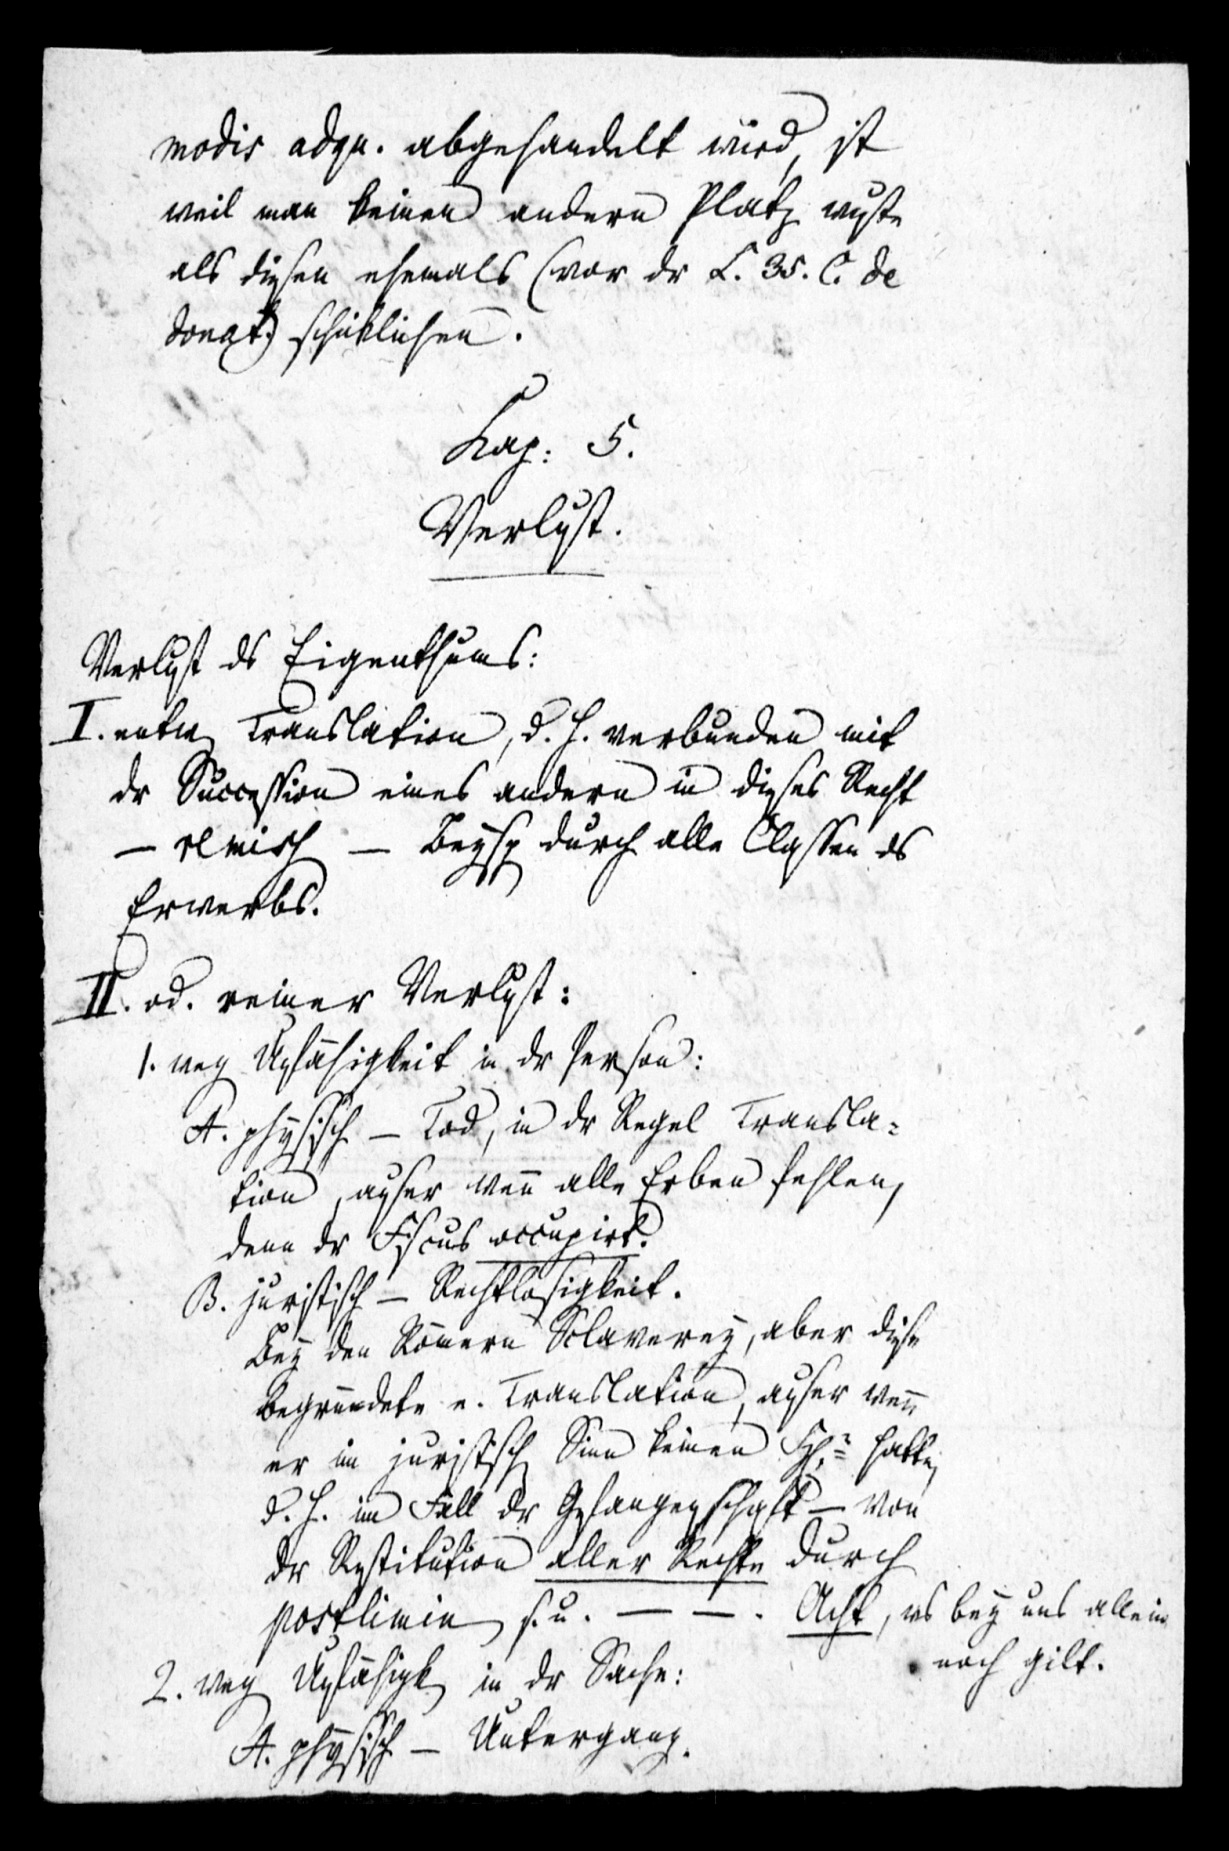 modis adqu. abgehandelt wird, ist
weil man keinen andern Platz wuste
als diesen ehemals (vor dr L. 35. C. de
donat.) schiklichen.
Kap: 5.
Verlust.
Verlust ds Eigenthums:
I. entw Translation, d. h. verbunden mit
dr Succession eines andern in dieses Recht
— — Beysp durch alle Classen ds
Erwerbs.
II. od. reiner Verlust:
1. weg Unfähigkeit in dr Person:
A. physisch — Tod, in dr Regel Transla-
tion, auser wenn alle Erben fehlen,
denn dr Fiscus occupirt.
B. juristisch — Rechtlosigkeit.
Bey den Römern Sclaverey, aber diese
begründete e. Translation, auser wenn
er im juristisch Sinn keinen hatte,
d. h. im Fall dr Gefangenschaft — von
dr Restitution aller Rechte durch
postlimin s. u. — — . Acht, ws bey uns allein
noch gilt.
2. weg Unfähigk in dr Sache:
A. physisch — Untergang.